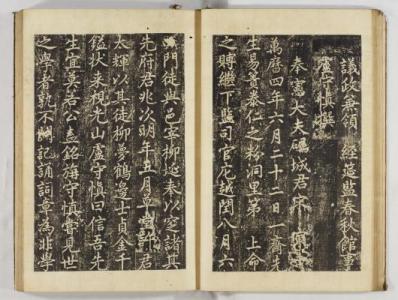 議政兼領 經筵監春秋館事
盧守慎撰
奉憲大夫礪城君宋 寅
萬曆四年六月二十二日一齋先
生易簀泰仁之粉洞里第 上命
之賻繼下監司官庀越閏八月六
門徒與邑宰柳 泰以定諸其
先府君兆次明年五月 君
太輝以其徒柳夢鶴邊士貞金千
鎰狀来視光山盧守慎曰信吾先
生宜莫若公志銘 守慎嘗見世
之學者孰不 記誦詞章為非學